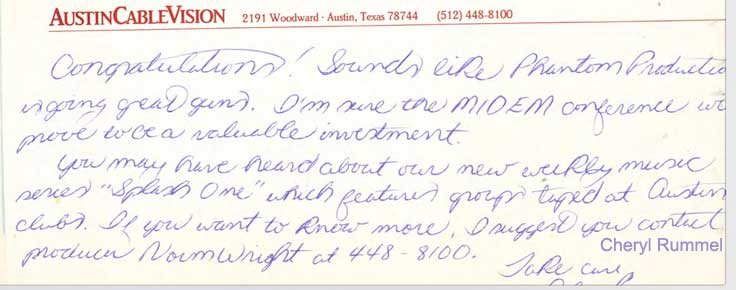 AUSTINCABLEVISION 2191 Woodward · Austin, Texas 78744 (512) 448-8100
Congratulations! Sounds like Phantom Productio
is going great guns. I'm sure the MIDEM conference wi
prove to be a valuable investment.
You may have heard about our new weekly music
series "Splash One" which features groups taped at Austin
clubs. If you want to know more, I suggest you contact
Cheryl Rummel
producer Norm Wright at 448-8100.
Take care,